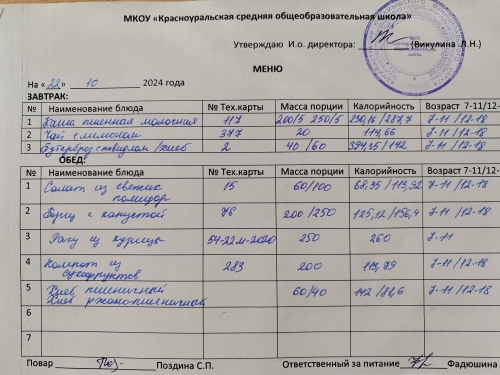 МКОУ «Красноуральская средняя общеобразовательная школа»
Утверждаю И.о. директора: (Викулина Л.Н.)
МЕНЮ
На «22» 10 2024 года
ЗАВТРАК:
№ Наименование блюда № Тех.карты Масса порции Калорийность Возраст 7-11/12-
1 Каша пшенная молочная 117 200/5 250/5 7-11/12-18
2 Чай с лимоном 377 20 114,66 7-11/12-18
3 Бутерброд с повидлом/хлеб 2 40/60 7-11/12-18
ОБЕД:
№ Наименование блюда № Тех.карты Масса порции Калорийность Возраст 7-11/12-
1 Салат из свежих помидор 15 60/100 68,35/113,92 7-11/12-18
2 Борщ с капустой 76 200/250 125,12/156,4 7-11/12-18
3 Рагу из курицы 54-22м-2020 250 260 7-11
4 Компот из сухофруктов 283 200 113,79 7-11/12-18
5 Хлеб пшеничный 60/40 142/82,6 7-11/12-18
Хлеб ржано-пшеничный
6
7
Повар Поздина С.П. Ответственный за питание Фадюшина